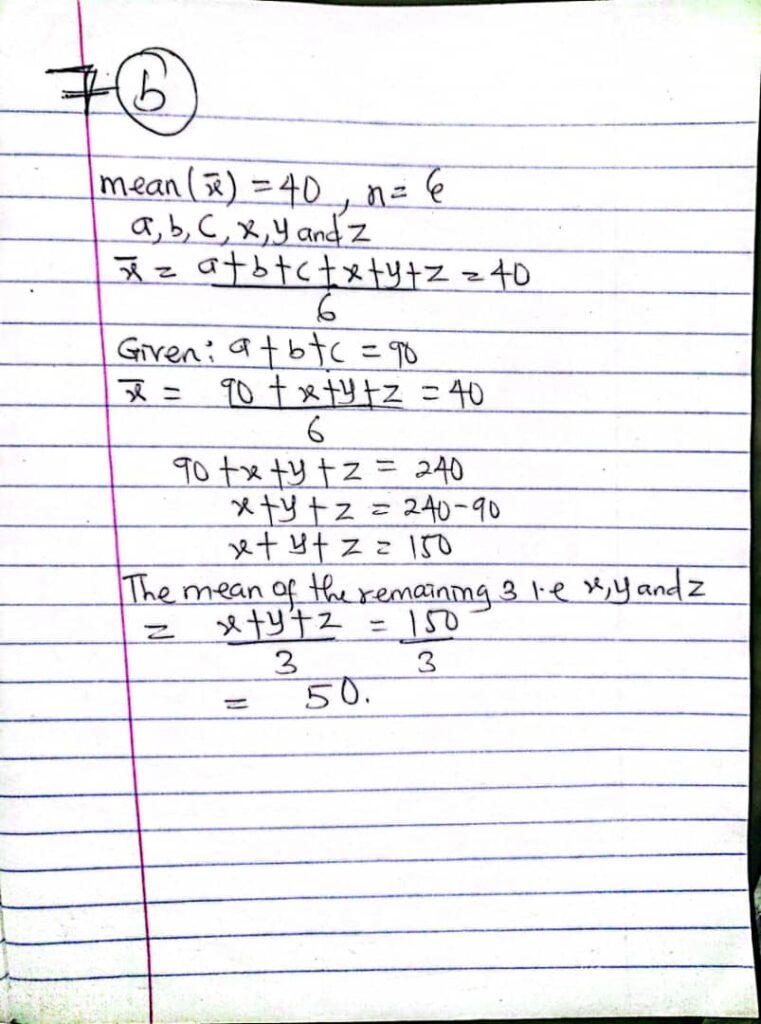 7 b
mean (x̄) = 40, n = 6
a, b, c, x, y and z
x̄ = a+b+c+x+y+z = 40
6
Given: a+b+c = 90
x̄ = 90 + x+y+z = 40
6
90 +x +y +z = 240
x+y +z = 240-90
x+y+z = 150
The mean of the remaining 3 i.e x, y and z
= x+y+z = 150
3 3
= 50.